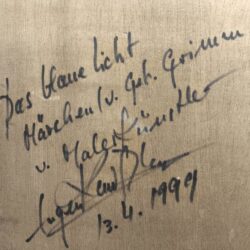 Das blaue Licht
Märchen v. Geb. Grimm
v. Maler Künstler
Eugen
13.4.1999